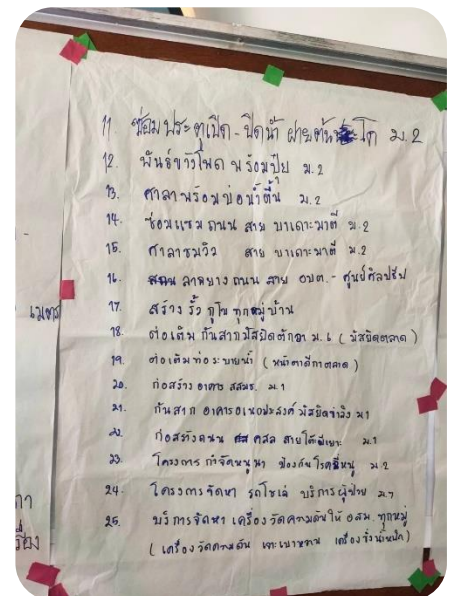 11. ซ่อมประตูเปิด-ปิดน้ำ ฝายต้น ม.2
12. พันธ์ขาวโพด พร้อมปุ๋ย ม.2
13. ศาลาพร้อมบ่อน้ำตื้น ม.2
14. ซ่อมแซมถนน สาย บาเดาะมาตี ม.2
15. ศาลาชมวิว สาย บาเดาะมาตี ม.2
16. ลาดยางถนน สาย อบต.- ศูนย์ศิลปชีพ
17. สร้าง รั้ว กุโบ ทุกหมู่บ้าน
18. ต่อเติม กันสาดมัสยิดตักวา ม.6 (มัสยิดตลาด)
19. ต่อเติมท่อระบายน้ำ (หน้าตาดีกาตลาด)
20. ก่อสร้าง อาคาร ม.1
21. กันสาด อาคารอเนกประสงค์ มัสยิด ม1
22. ก่อสร้างถนน คสล สายโต๊ะ ม.1
23. โครงการ กำจัดหนูนา ป้องกันโรคฉี่หนู ม.2
24. โครงการจัดหา รถ บริการผู้ป่วย ม.7
25. บริการจัดหา เครื่องวัดความดันให้ อสม. ทุกหมู่
(เครื่องวัดความดัน เจาะเบาหวาน เครื่องชั่งน้ำหนัก)